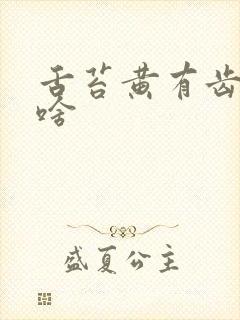 舌苔黄有齿
啥
盛夏公主